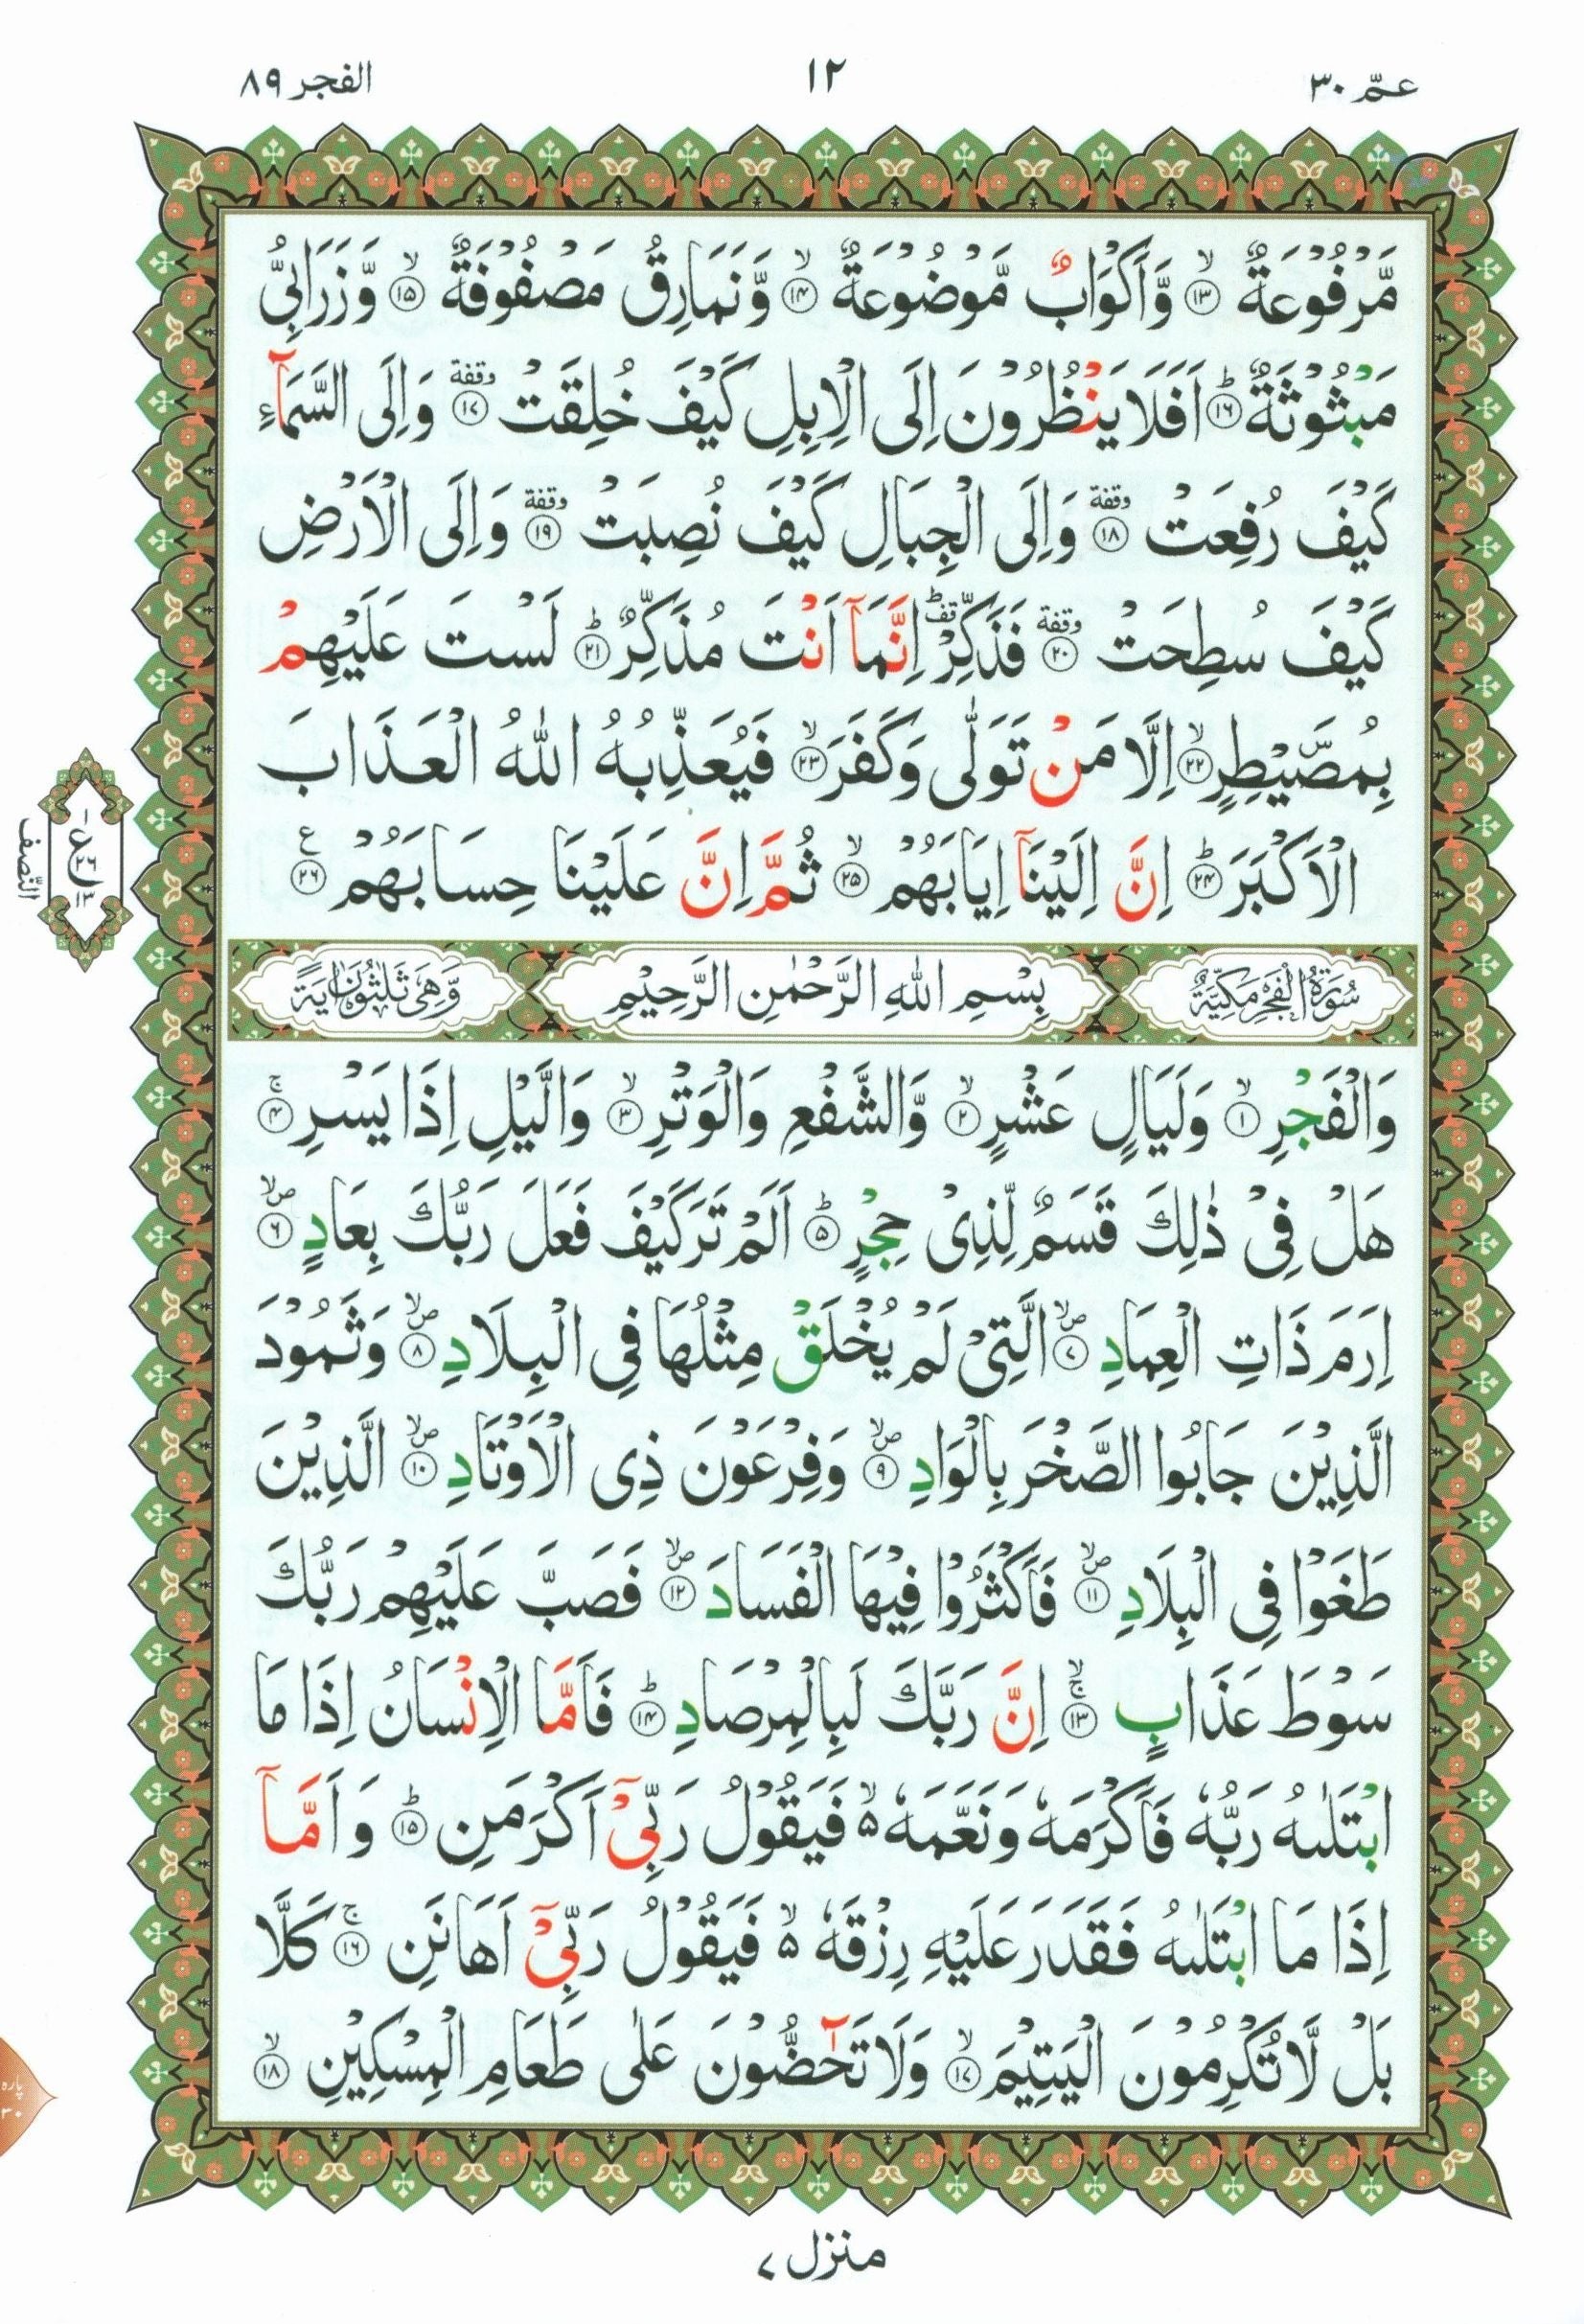 عمّ ٣٠
١٢
الفجر ٨٩
مَّرْفُوْعَةٌ ۙ﴿١٣﴾ وَّاَكْوَابٌ مَّوْضُوْعَةٌ ۙ﴿١٤﴾ وَّنَمَارِقُ مَصْفُوْفَةٌ ۙ﴿١٥﴾ وَّزَرَابِيُّ
مَبْثُوْثَةٌ ؕ﴿١٦﴾ اَفَلَا يَنْظُرُوْنَ اِلَى الْاِبِلِ كَيْفَ خُلِقَتْ وقفة ﴿١٧﴾ وَاِلَى السَّمَآءِ
كَيْفَ رُفِعَتْ وقفة ﴿١٨﴾ وَاِلَى الْجِبَالِ كَيْفَ نُصِبَتْ وقفة ﴿١٩﴾ وَاِلَى الْاَرْضِ
كَيْفَ سُطِحَتْ وقفة ﴿٢٠﴾ فَذَكِّرْ ؕقف اِنَّمَاۤ اَنْتَ مُذَكِّرٌ ؕ﴿٢١﴾ لَسْتَ عَلَيْهِمْ
بِمُصَۜيْطِرٍ ۙ﴿٢٢﴾ اِلَّا مَنْ تَوَلّٰى وَكَفَرَ ۙ﴿٢٣﴾ فَيُعَذِّبُهُ اللّٰهُ الْعَذَابَ
الْاَكْبَرَ ؕ﴿٢٤﴾ اِنَّ اِلَيْنَاۤ اِيَابَهُمْ ۙ﴿٢٥﴾ ثُمَّ اِنَّ عَلَيْنَا حِسَابَهُمْ ع ﴿٢٦﴾
ع
٢٦
١٣
النّصف
سُوْرَةُ الْفَجْرِ مَكِّيَّةٌ
بِسْمِ اللّٰهِ الرَّحْمٰنِ الرَّحِيْمِ
وَّهِيَ ثَلٰثُوْنَ اٰيَةً
وَالْفَجْرِ ۙ﴿١﴾ وَلَيَالٍ عَشْرٍ ۙ﴿٢﴾ وَّالشَّفْعِ وَالْوَتْرِ ۙ﴿٣﴾ وَالَّيْلِ اِذَا يَسْرِ ۚ﴿٤﴾
هَلْ فِيْ ذٰلِكَ قَسَمٌ لِّذِيْ حِجْرٍ ؕ﴿٥﴾ اَلَمْ تَرَ كَيْفَ فَعَلَ رَبُّكَ بِعَادٍ ۙص﴿٦﴾
اِرَمَ ذَاتِ الْعِمَادِ ۙص﴿٧﴾ الَّتِيْ لَمْ يُخْلَقْ مِثْلُهَا فِي الْبِلَادِ ۙص﴿٨﴾ وَثَمُوْدَ
الَّذِيْنَ جَابُوا الصَّخْرَ بِالْوَادِ ۙص﴿٩﴾ وَفِرْعَوْنَ ذِي الْاَوْتَادِ ۙص﴿١٠﴾ الَّذِيْنَ
طَغَوْا فِي الْبِلَادِ ۙص﴿١١﴾ فَاَكْثَرُوْا فِيْهَا الْفَسَادَ ۙص﴿١٢﴾ فَصَبَّ عَلَيْهِمْ رَبُّكَ
سَوْطَ عَذَابٍ ۚۙ﴿١٣﴾ اِنَّ رَبَّكَ لَبِالْمِرْصَادِ ؕ﴿١٤﴾ فَاَمَّا الْاِنْسَانُ اِذَا مَا
ابْتَلٰىهُ رَبُّهٗ فَاَكْرَمَهٗ وَنَعَّمَهٗ ۙ۵ فَيَقُوْلُ رَبِّيْۤ اَكْرَمَنِ ؕ﴿١٥﴾ وَاَمَّاۤ
اِذَا مَا ابْتَلٰىهُ فَقَدَرَ عَلَيْهِ رِزْقَهٗ ۙ۵ فَيَقُوْلُ رَبِّيْۤ اَهَانَنِ ۚ﴿١٦﴾ كَلَّا
بَلْ لَّا تُكْرِمُوْنَ الْيَتِيْمَ ۙ﴿١٧﴾ وَلَا تَحٰٓضُّوْنَ عَلٰى طَعَامِ الْمِسْكِيْنِ ۙ﴿١٨﴾
پاره
٣٠
منزل ٧